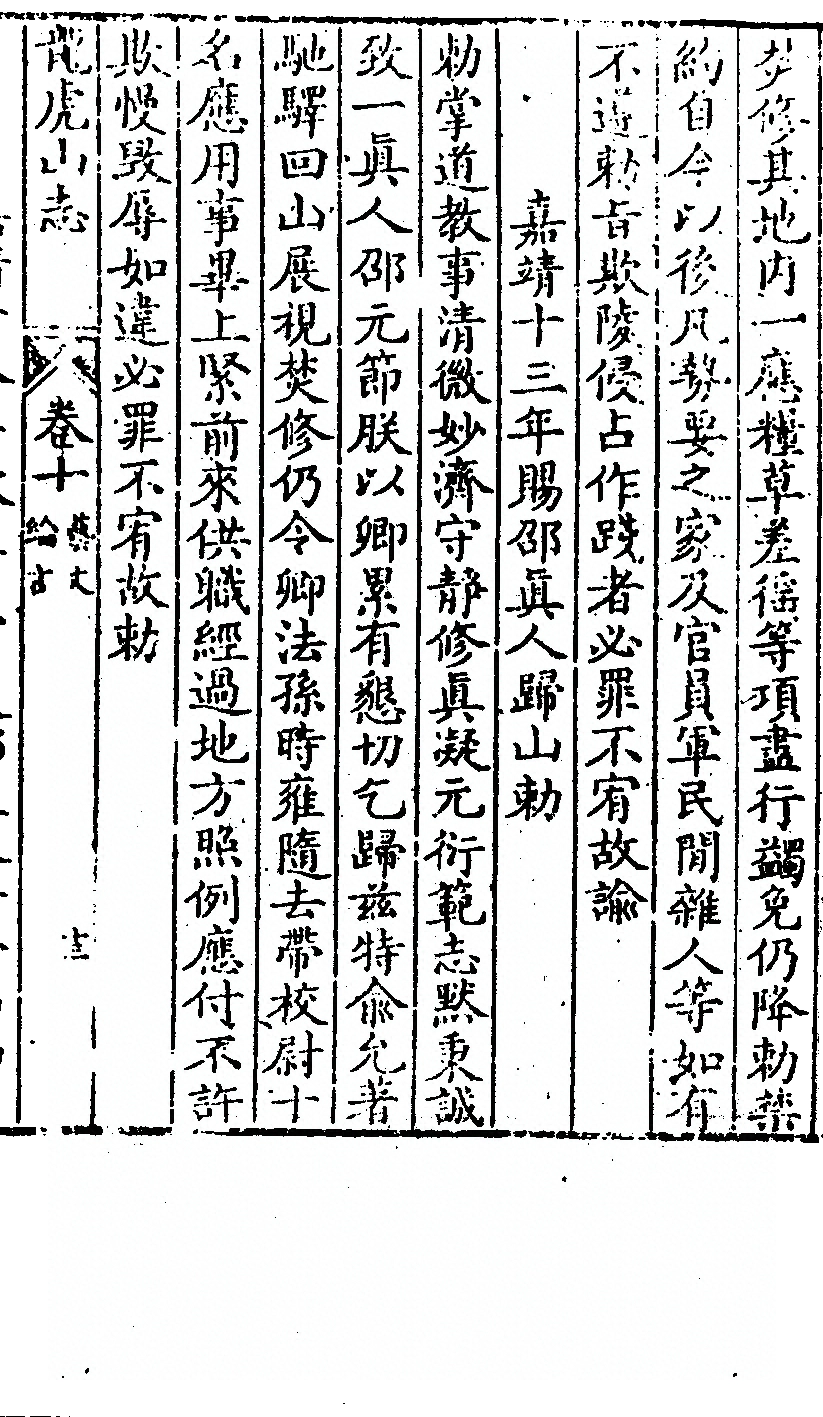 焚修其地內一應糧草差徭等項盡行蠲免仍降勅禁
約自今以後凡勢要之家及官員軍民閒雜人等如有
不遵勅旨欺陵侵占作踐者必罪不宥故諭
嘉靖十三年賜邵眞人歸山勅
勅掌道教事清微妙濟守靜修眞凝元衍範志默秉誠
致一眞人邵元節朕以卿累有懇切乞歸兹特俞允著
馳驛回山展視焚修仍令卿法孫時雍隨去帶校尉十
名應用事畢上緊前來供職經過地方照例應付不許
欺慢毁辱如違必罪不宥故勅
龍虎山志
卷十
藝文
綸言